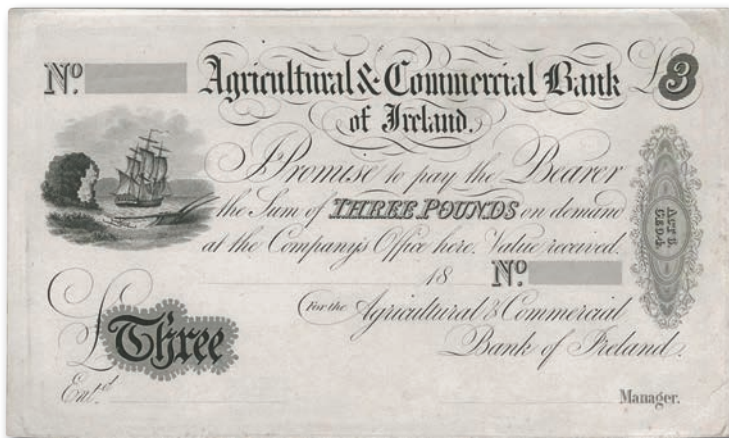 Nº Agricultural & Commercial Bank £3
of Ireland.
I Promise to pay the Bearer
the Sum of THREE POUNDS on demand
at the Company's Office here. Value received.
18 Nº
For the Agricultural & Commercial
£Three Bank of Ireland.
Entd. Manager.